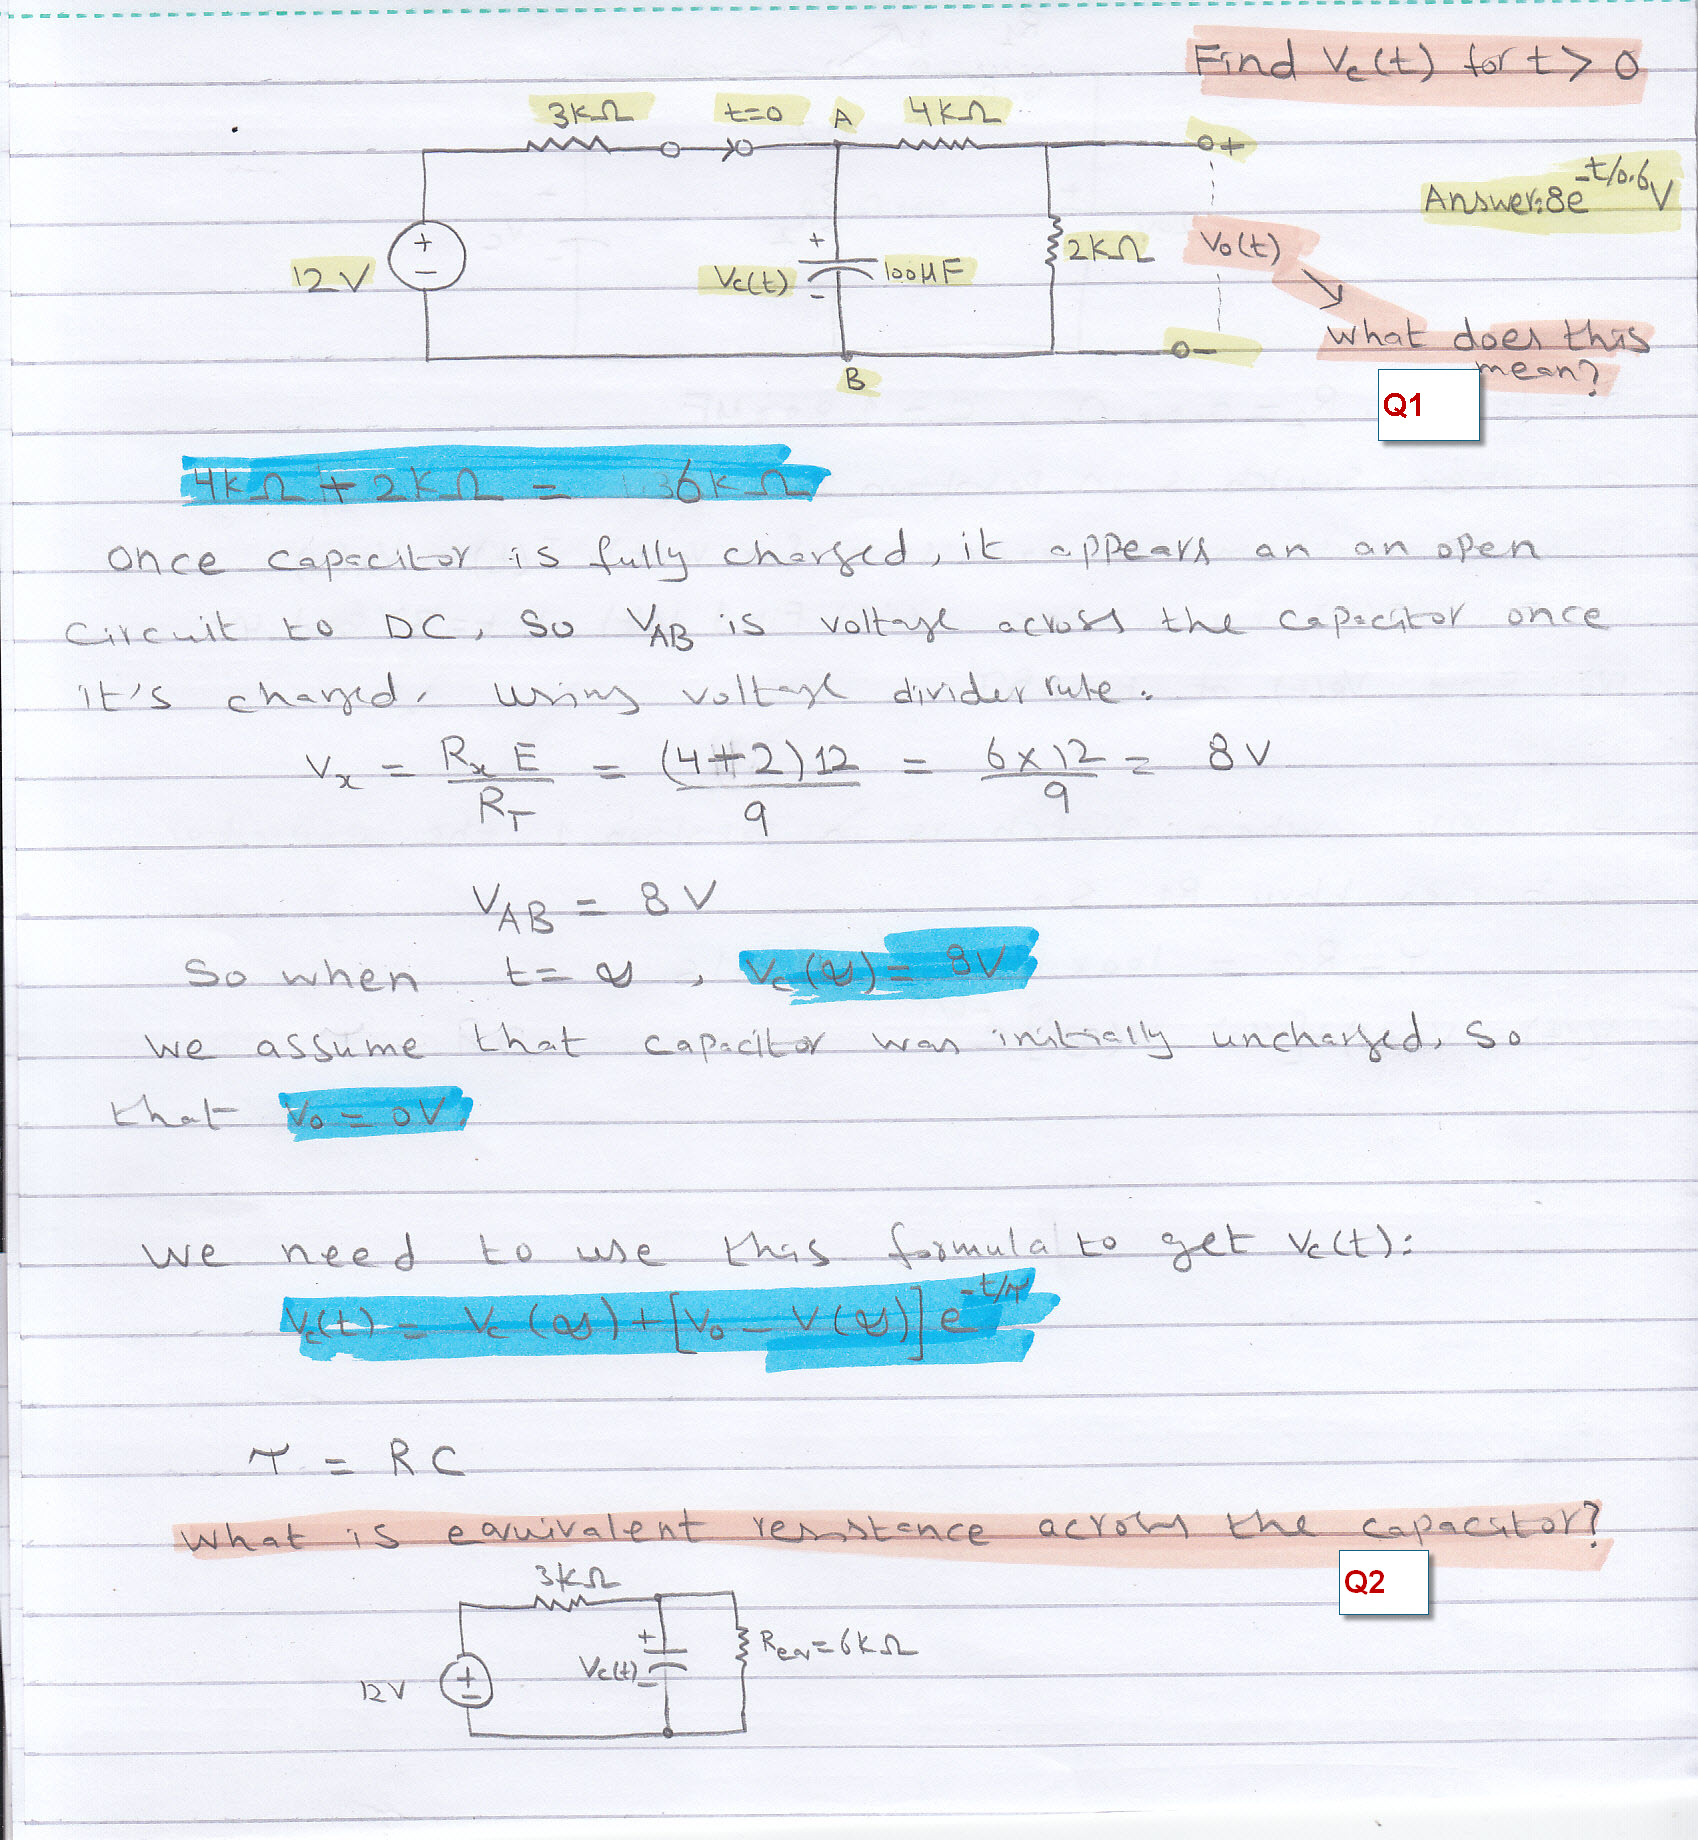 Find Vc(t) for t > 0
3kΩ t=0 A 4kΩ
+
Answer: 8e^-t/0.6 V
+ + 2kΩ Vo(t)
12V - Vc(t) 100μF
-
What does this
mean?
B
-
Q1
4kΩ + 2kΩ = 6kΩ
Once capacitor is fully charged, it appears an an open
circuit to DC, So VAB is voltage across the capacitor once
it's charged. Using voltage divider rule.
Vx = Rx E / RT = (4+2)12 / 9 = 6×12 / 9 = 8V
VAB = 8V
So when t = ∞, Vc(∞) = 8V
We assume that capacitor was initially uncharged, so
that Vo = 0V.
We need to use this formula to get Vc(t):
Vc(t) = Vc(∞) + [Vo - V(∞)] e^-t/τ
τ = RC
What is equivalent resistance across the capacitor?
Q2
3kΩ
+ Req = 6kΩ
12V + - Vc(t) -